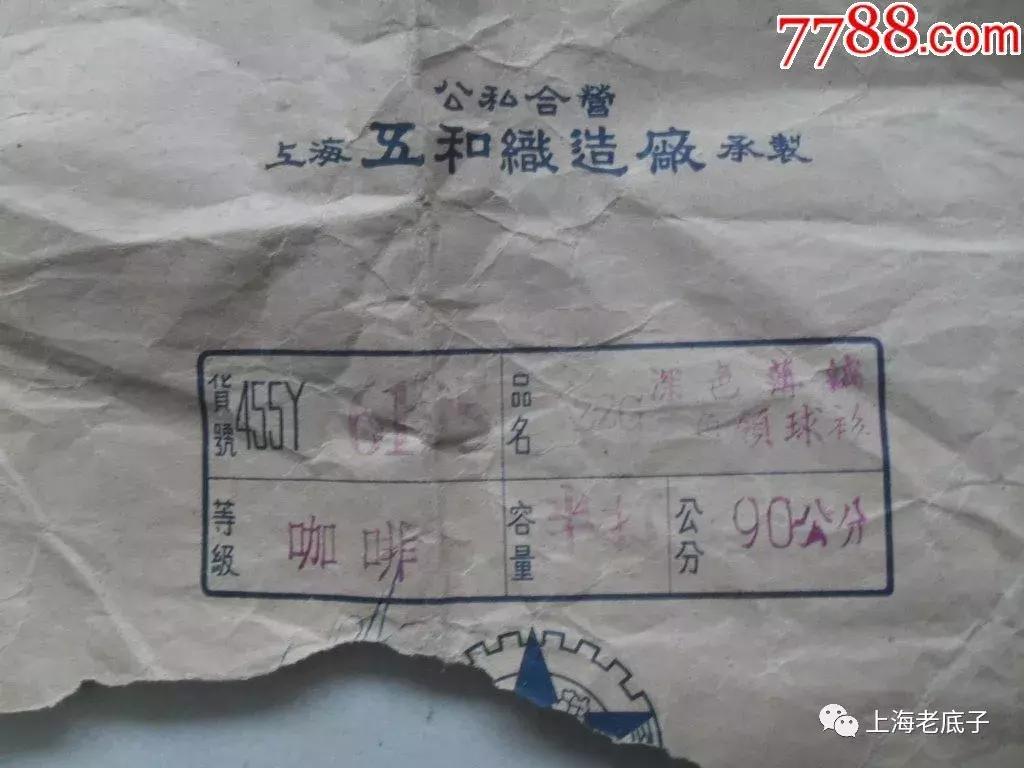 7788.com
公私合營
上海五和織造廠承製
貨號 455Y
品名 深色
領球衫
等級 咖啡
容量 半打
公分 90公分
上海老底子